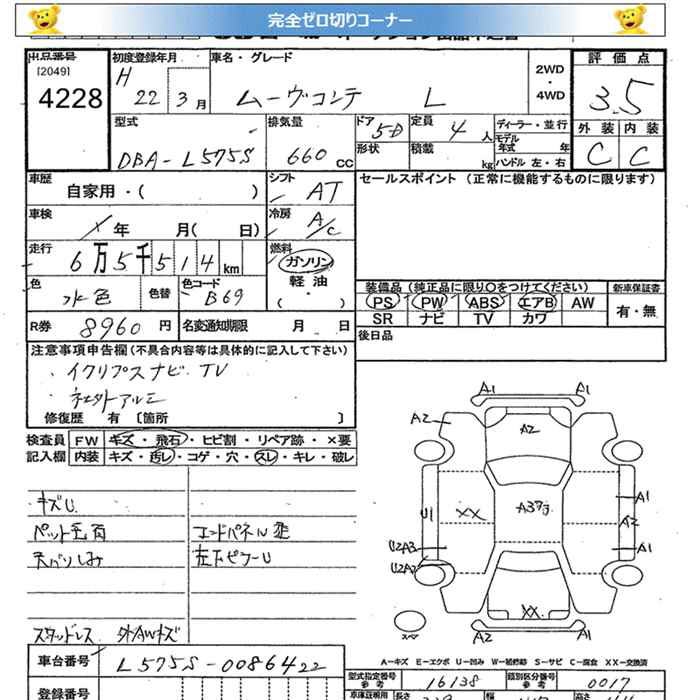 完全ゼロ切りコーナー
出品番号
[2049]
4228
初度登録年月
H 22 年 3月
車名・グレード
ムーヴコンテ L
2WD
・
4WD
評価点
3.5
外装 内装
C C
型式
DBA-L575S
排気量
660 CC
ドア 5D
形状
定員 4人
積載 kg
ディーラー・並行
モデル年式 年
ハンドル 左・右
車歴
自家用・( )
シフト AT
セールスポイント (正常に機能するものに限ります)
車検
年 月( 日)
冷房 A/C
走行
6万5千514km
燃料
ガソリン
軽油
・
色
水色
色替
色コード
B69
装備品 (純正品に限り○をつけてください)
PS PW ABS エアB AW
SR ナビ TV カワ
新車保証書
有・無
R券 8960円
名変通知期限 月 日
後日品
注意事項申告欄 (不具合内容等は具体的に記入して下さい)
・イクリプスナビ TV
・社外アルミ
修復歴 有 〔箇所 〕
検査員 FW キズ・飛石・ヒビ割・リペア跡・×要
記入欄 内装 キズ・汚レ・コゲ・穴・スレ・キレ・破レ
キズU
エンドパネル歪
天バリしみ
左下ピラーU
スタッドレス 外AWキズ
A1 A1
A2
A2
U1
XX
A3
A1
A2
U2A3
A1
U2A2
XX
A2 A1
スペア
A-キズ E-エクボ U-凹み W-補修跡 S-サビ C-腐食 XX-交換済
車台番号 L575S-0086422
型式指定番号 参考 16138
類別区分番号 参考 0017
登録番号
車庫証明用 長さ 幅 高さ